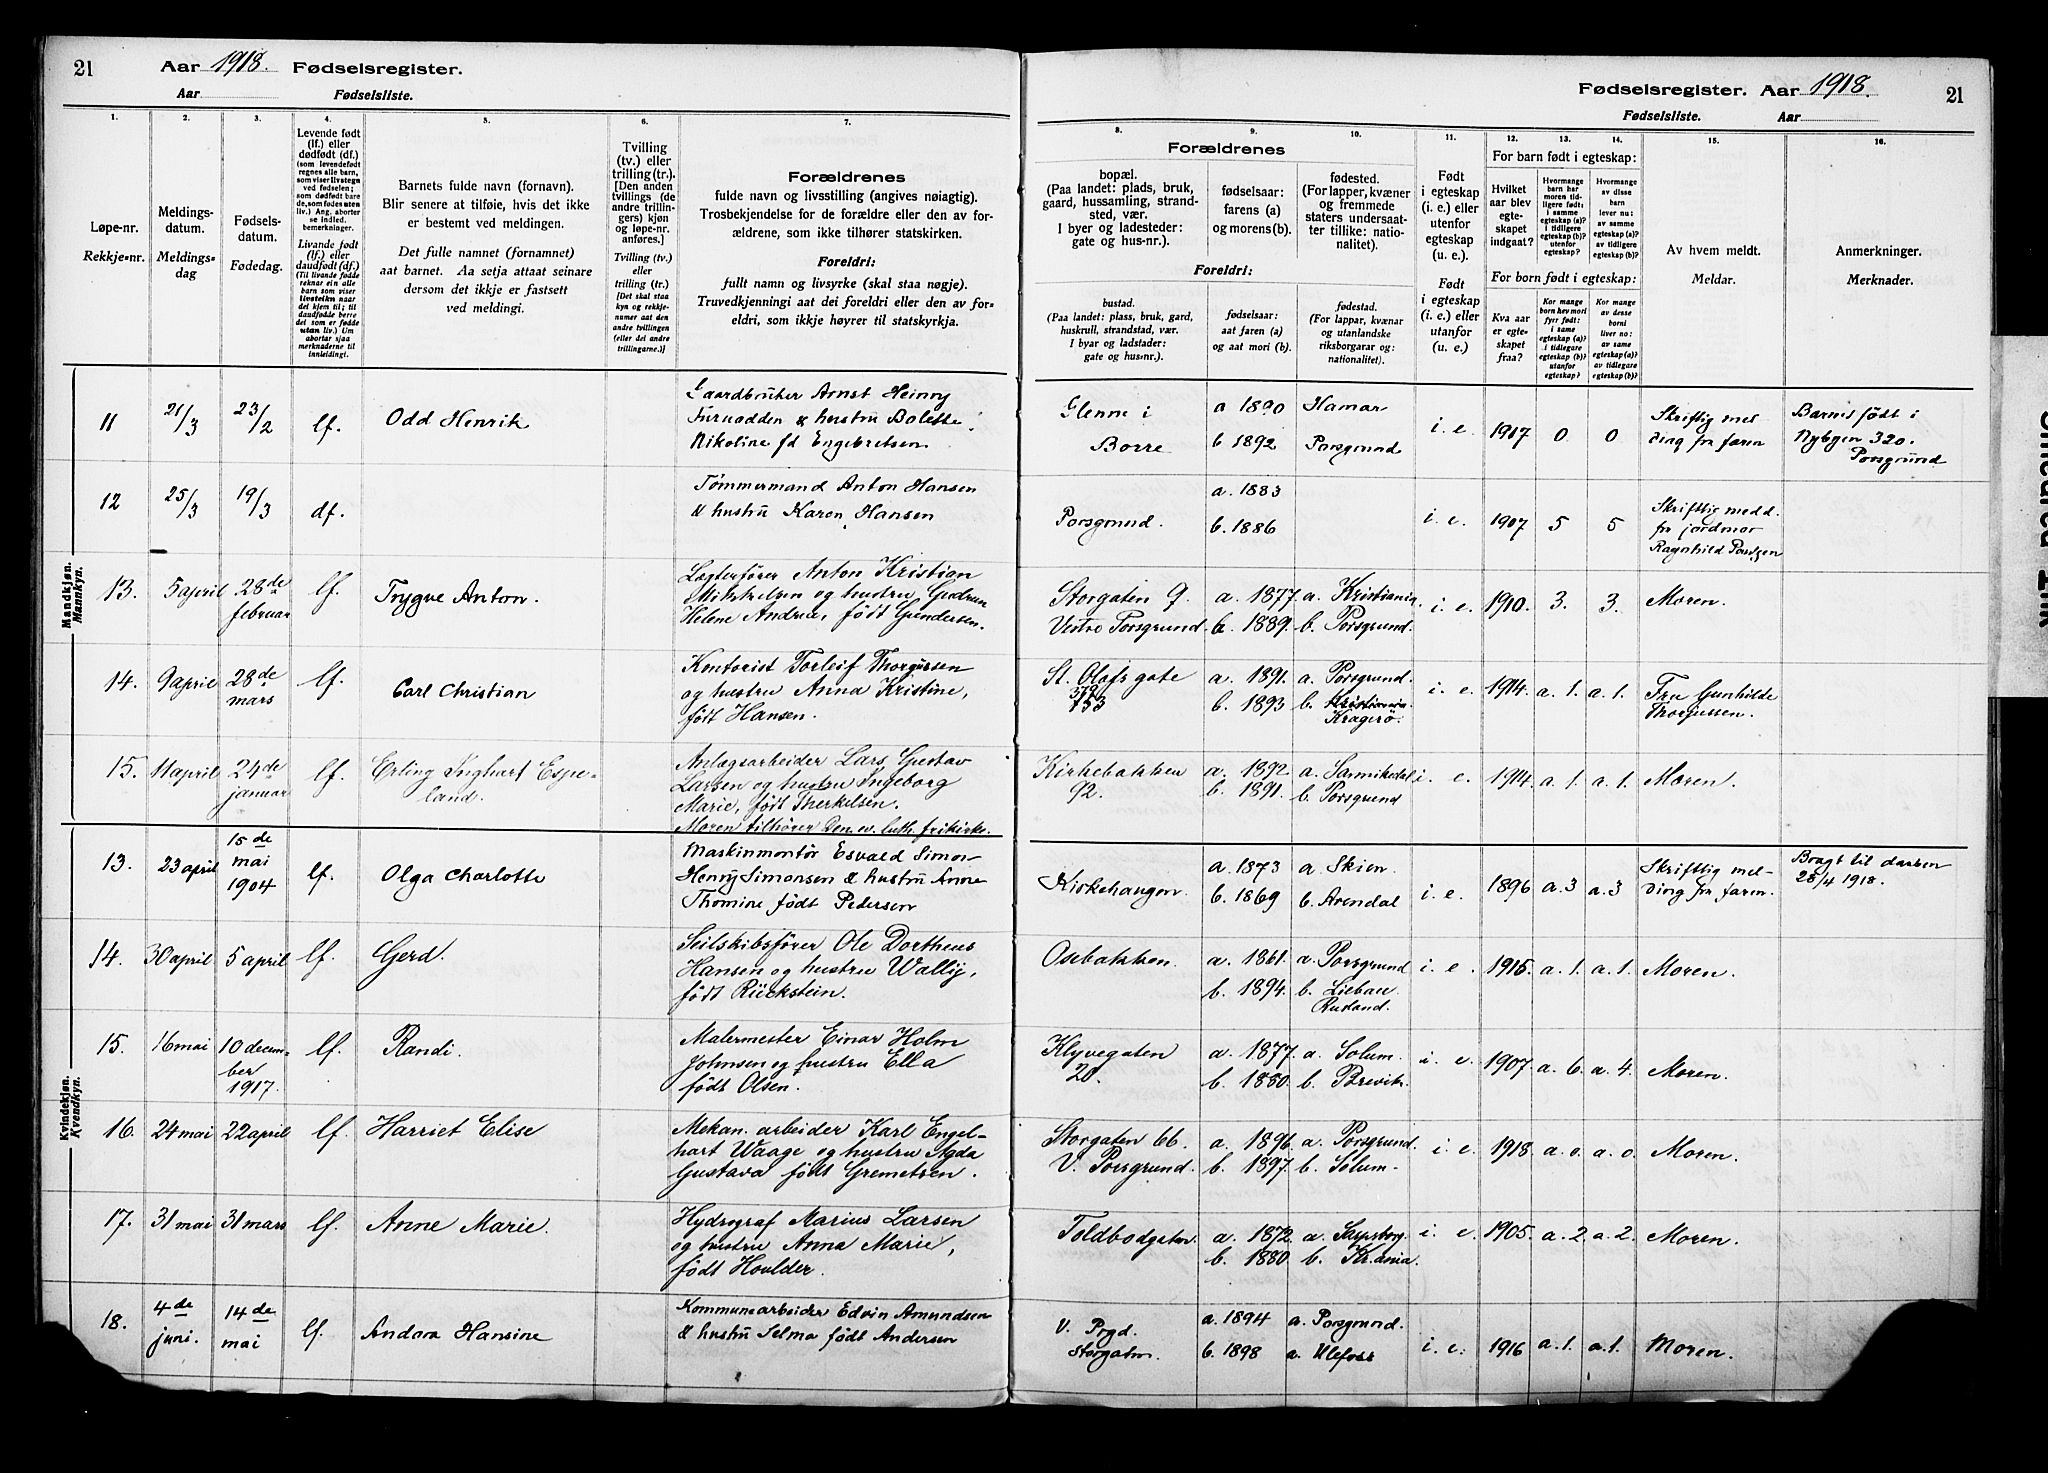 21
Aar 1918. Fødselsregister.
Aar Fødselsliste.
1.
Løpe-nr.
Rekkje-nr.
2.
Meldings-
datum.
Meldings-
dag
3.
Fødsels-
datum.
Fødedag.
4.
Levende født
(lf.) eller
dødfødt (df.)
(som levendefødt
regnes alle barn,
som viser livstegn
ved fødselen;
som dødfødt bare
de, som fødes uten
liv.) Ang. aborter
se indled.
bemerkninger.
Livande født
(lf.) eller
daudfødt (df.)
(Til livande fødde
reknar ein alle
born som viser
livsteikn naar
det kjem til; til
daudfødde berre
det som er fødde
utan liv.) Um
abortar sjaa
merknaderne til
innleidingi.
5.
Barnets fulde navn (fornavn).
Blir senere at tilføie, hvis det ikke
er bestemt ved meldingen.
Det fulle namnet (fornamnet)
aat barnet. Aa setja attaat seinare
dersom det ikkje er fastsett
ved meldingi.
6.
Tvilling
(tv.) eller
trilling (tr.).
[Den anden
tvillings (de
andre trillin-
gers) kjøn
og løpe-nr.
anføres.]
Tvilling (tv.)
eller
trilling (tr.)
[Det skal staa
kyn og rekkje-
numer aat den
andre tvillingen
(eller dei andre
trillingarne.)]
7.
Forældrenes
fulde navn og livsstilling (angives nøiagtig).
Trosbekjendelse for de forældre eller den av for-
ældrene, som ikke tilhører statskirken.
Foreldri:
fullt namn og livsyrke (skal staa nøgje).
Truvedkjenningi aat dei foreldri eller den av for-
eldri, som ikkje høyrer til statskyrkja.
Mandkjøn.
Mannkyn.
11 21/3 23/2 lf. Odd Henrik
Gaardbruker Arnst Heinry
Furnodden & hustru Bolette
Nikoline fd Engebretsen
12 25/3 19/3 df.
Tømmermand Anton Hansen
& hustru Karen Hansen
13. 5 april 28de februar lf. Trygve Anton.
Lægterfører Anton Kristian
Mikkelsen og hustru Gudrun
Helene Andrea, født Gundersen.
14. 9 april 28de mars lf. Carl Christian
Kontorist Torleif Thorjussen
og hustru Anna Kristine,
født Hansen.
15. 11 april 24de januar lf. Erling Inghart Espe-
land.
Anlægsarbeider Lars Gustav
Larsen og hustru Ingeborg
Marie, født Therkelsen.
Moren tilhører Den ev. luth. frikirke.
Kvindekjøn.
Kvendkyn.
13. 23 april 15de mai 1904 lf. Olga Charlotte
Maskinmontør Esvald Simon
Henry Simonsen & hustru Anne
Thomine født Pedersen
14. 30 april 5 april lf. Gerd.
Seilskibsfører Ole Dortheus
Hansen og hustru Wally,
født Rückstein.
15. 16 mai 10 decem-
ber
1917. lf. Randi.
Malermester Einar Holm
Johnsen og hustru Ella
født Olsen.
16. 24 mai 22 april lf. Harriet Elise
Mekan. arbeider Karl Engel-
hart Waage og hustru Agda
Gustava født Gremetsen.
17. 31 mai 31 mars lf. Anne Marie.
Hydrograf Marius Larsen
og hustru Anna Marie,
født Houlder.
18. 4de juni. 14de mai lf. Andora Hansine
Kommunearbeider Edvin Amundsen
& hustru Selma født Andersen
Fødselsregister. Aar 1918. 21
Fødselsliste. Aar
8.
Forældrenes
bopæl.
(Paa landet: plads, bruk,
gaard, hussamling, strand-
sted, vær.
I byer og ladesteder:
gate og hus-nr.).
Foreldri:
bustad.
(Paa landet: plass, bruk, gard,
huskrull, strandstad, vær.
I byar og ladstader:
gate og hus-nr.).
9.
fødselsaar:
farens (a)
og morens (b).
fødselsaar:
aat faren (a)
og aat mori (b).
10.
fødested.
(For lapper, kvæner
og fremmede
staters undersaat-
ter tillike: natio-
nalitet).
fødestad.
(For lappar, kvænar
og utanlandske
riksborgarar og:
nationalitet).
11.
Født
i egteskap
(i. e.) eller
utenfor
egteskap
(u. e.).
Født
i egteskap
(i. e.) eller
utanfor
(u. e.).
12.
13.
14.
For barn født i egteskap:
Hvilket
aar blev
egte-
skapet
indgaat?
Hvormange
barn har
moren tid-
ligere født:
i samme
egteskap (a)?
i tidligere
egteskap (b)?
utenfor
egteskap?
Hvormange
av disse
barn
lever nu:
av samme
egteskap (a)?
av tidligere
egteskap (b)?
For born født i egteskap:
Kva aar
er egte-
skapet
fraa?
Kor mange
born hev mori
fyrr født:
i same
egteskap (a)?
i tidlegare
egteskap (b)?
utanfor
egteskap?
Kor mange
av desse
borni
liver no:
av same
egteskap (a)?
av tidlegare
egteskap (b)?
15.
Av hvem meldt.
Meldar.
16.
Anmerkninger.
Merknader.
Glenne i
Borre
a 1890 Hamar
b 1892 Porsgrund
i. e. 1917 0 0
Skriftlig mel
ding fra faren
Barnet født i
Nybyen 320.
Porsgrund
Porsgrund.
a. 1883
b. 1886
i. e. 1907 5 5
Skriftlig medd.
fra jordmor
Ragnhild
Storgaten 9.
Vestre Porsgrund.
a. 1877. a. Kristiania
b. 1889. b. Porsgrund.
i. e. 1910. 3. 3. Moren.
St. Olafs gate
753
a. 1891. a. Porsgrund.
b. 1893 b. Kristiania
Kragerø.
i. e. 1914. a. 1. a. 1. Fru Gunhilde
Thorjussen.
Kirkebakken
92.
a. 1892 a. Sannikedal
b. 1891. b. Porsgrund
i. e. 1914. a. 1. a. 1. Moren.
Kirkehaugen.
a. 1873 a. Skien.
b. 1869 b. Arendal
i. e. 1896 a. 3 a. 3
Skriftlig mel-
ding fra faren.
Bragt til daaben
28/4 1918.
Osebakken.
a. 1861. a. Porsgrund
b. 1894. b. Liebau
Rusland.
i. e. 1915. a. 1. a. 1. Moren.
Klyvegaten
20.
a. 1877. a. Solum.
b. 1880. b. Brevik.
i. e. 1907. a. 6. a. 4. Moren.
Storgaten 66.
V. Porsgrund.
a. 1896. a. Porsgrund.
b. 1897. b. Solum.
i. e. 1918. a. o. a. o. Moren.
Toldbodgaten.
a. 1872. a. Sarpsborg.
b. 1880. b. Kr.ania.
i. e. 1905. a. 2. a. 2. Moren.
V. Prgd.
Storgaten.
a. 1894 a. Porsgrund.
b. 1898 a. Ulefoss
i. e. 1916 a. 1. a. 1. Moren.